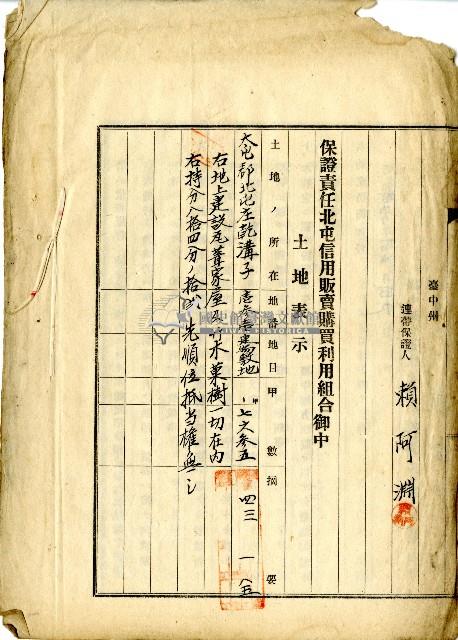 臺中州
連帶保證人 賴阿淵
保證責任北屯信用販賣購買利用組合御中
土地表示
土地ノ所在地番地目甲數摘要
大屯郡北屯庄乾溝子 敷地 七六参五 四三 一 八五
右地上建設瓦葺家屋 竹木菓樹一切在内
右持分八拾四分ノ拾弐 先順位抵当権無シ
國史館臺灣文獻館